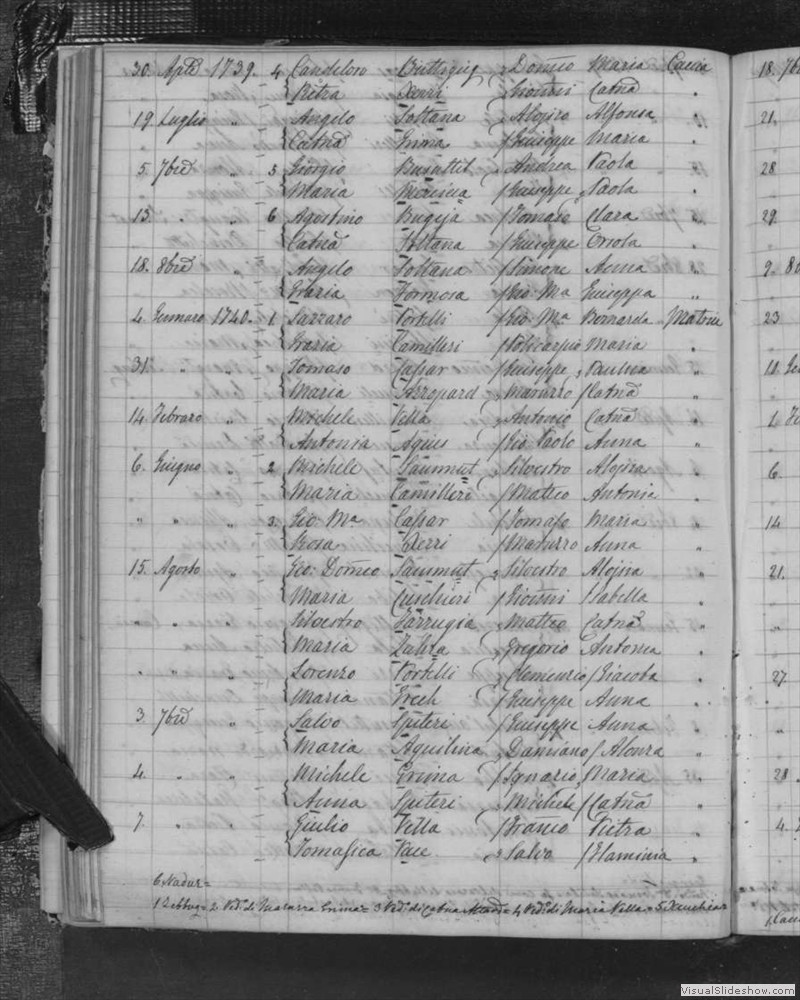 30. Aple 1739. 4 Candeloro Buttigieg Domco Maria Caccia
Pietra Xerri Gioanni Catna
19 Luglio " Angelo Soltana Aloisio Alfonsa
Catna Grima Giuseppe Maria
5. 7bre " 5 Giorgio Busuttil Andrea Paola
Maria Giuseppe Paola
13. " " 6 Agostino Bugeja Tomaso Clara
Catna Soltana Giuseppe Orsola
18. 8bre " Angelo Soltana Simone Anna
Grazia Formosa Gio: Ma Giuseppa "
4. Gennaro 1740. 1 Lazzaro Portelli Gio: Ma Bernarda
Grazia Camilleri Policarpio Maria
31. " " Tomaso Cassar Giuseppe Paulina
Maria Maruzzo Catna
14. Febraro " Michele Vella Antonio Catna
Antonia Agius Gio: Paolo Anna "
6. Giugno " 2 Michele Sammut Silvestro Aloisia
Maria Camilleri Matteo Antonia
" " " 3. Gio: Ma Cassar Tomaso Maria
Rosa Xerri Maruzzo Anna "
15. Agosto " Gio: Domco Sammut Silvestro Aloisia "
Maria Cuschieri Gioanni Isabella
" " " Silvestro Farrugia Matteo Catna
Maria Zahra Gregorio Antonia
" " " Lorenzo Portelli Clemenzio Giacoba
Maria Grech Giuseppe Anna
3. 7bre " Salvo Spiteri Giuseppe Anna
Maria Aquilina Damiano Alonza "
4. " " Michele Grima Ignazio Maria
Anna Spiteri Michele Catna
7. " " Giulio Vella Franco Pietra
Tomasica Pace Salvo Flaminia
6 Nadur =
1 Zebbug = 2 Veda di Grima = 3 Veda di Catna = 4 Veda di Maria Vella = 5
18. 7b
21.
28
29.
9. 8b
23
11. Ge
1. Fe
6.
14
21.
27.
28
4.
VisualSlideshow.com